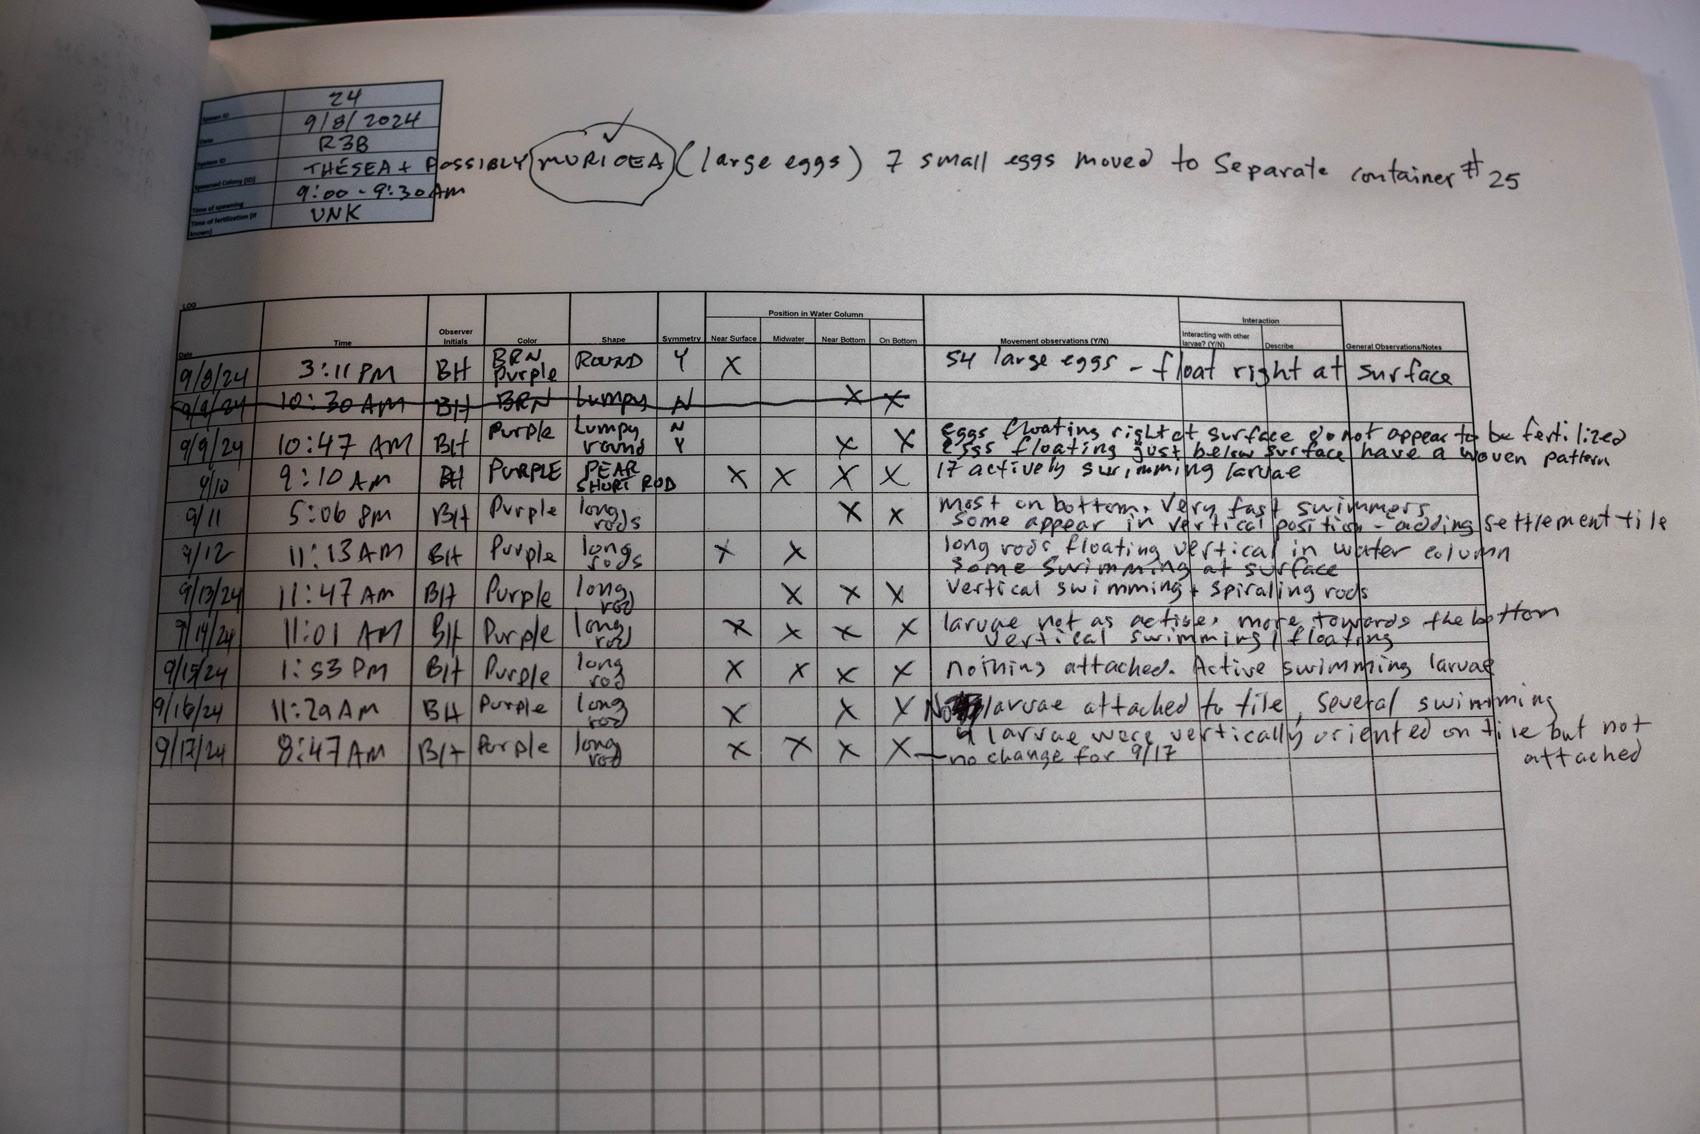 Spawn ID 24
Date 9/8/2024
System ID R3B
Spawned Colony (ID) THESEA + POSSIBLY MURICEA (large eggs) 7 small eggs moved to Separate container #25
Time of spawning 9:00 - 9:30 AM
Time of fertilization (if known) UNK
LOG
Position in Water Column Interaction
Date Time Observer Initials Color Shape Symmetry Near Surface Midwater Near Bottom On Bottom Movement observations (Y/N) Interacting with other larvae? (Y/N) Describe General Observations/Notes
9/8/24 3:11 PM BH BRN Purple ROUND Y X 54 large eggs - float right at surface
9/9/24 10:30 AM BH BRN Lumpy N X X
9/9/24 10:47 AM BH Purple Lumpy N round Y X X eggs floating right at surface do not appear to be fertilized
eggs floating just below surface have a woven pattern
9/10 9:10 AM BH PURPLE PEAR SHORT ROD X X X X 17 actively swimming larvae
9/11 5:06 PM BH Purple long rods X X most on bottom. Very fast swimmers
some appear in vertical position - adding settlement tile
9/12 11:13 AM BH Purple long rods X X long rods floating vertical in water column
some swimming at surface
9/13/24 11:47 AM BH Purple long rod X X X vertical swimming + spiraling rods
9/14/24 11:01 AM BH Purple long rod X X X X larvae not as active, more towards the bottom
vertical swimming / floating
9/15/24 1:53 PM BH Purple long rod X X X X nothing attached. Active swimming larvae
9/16/24 11:29 AM BH Purple long rod X X X No larvae attached to tile, Several swimming
4 larvae were vertically oriented on tile but not attached
9/17/24 8:47 AM BH Purple long rod X X X X - no change for 9/17